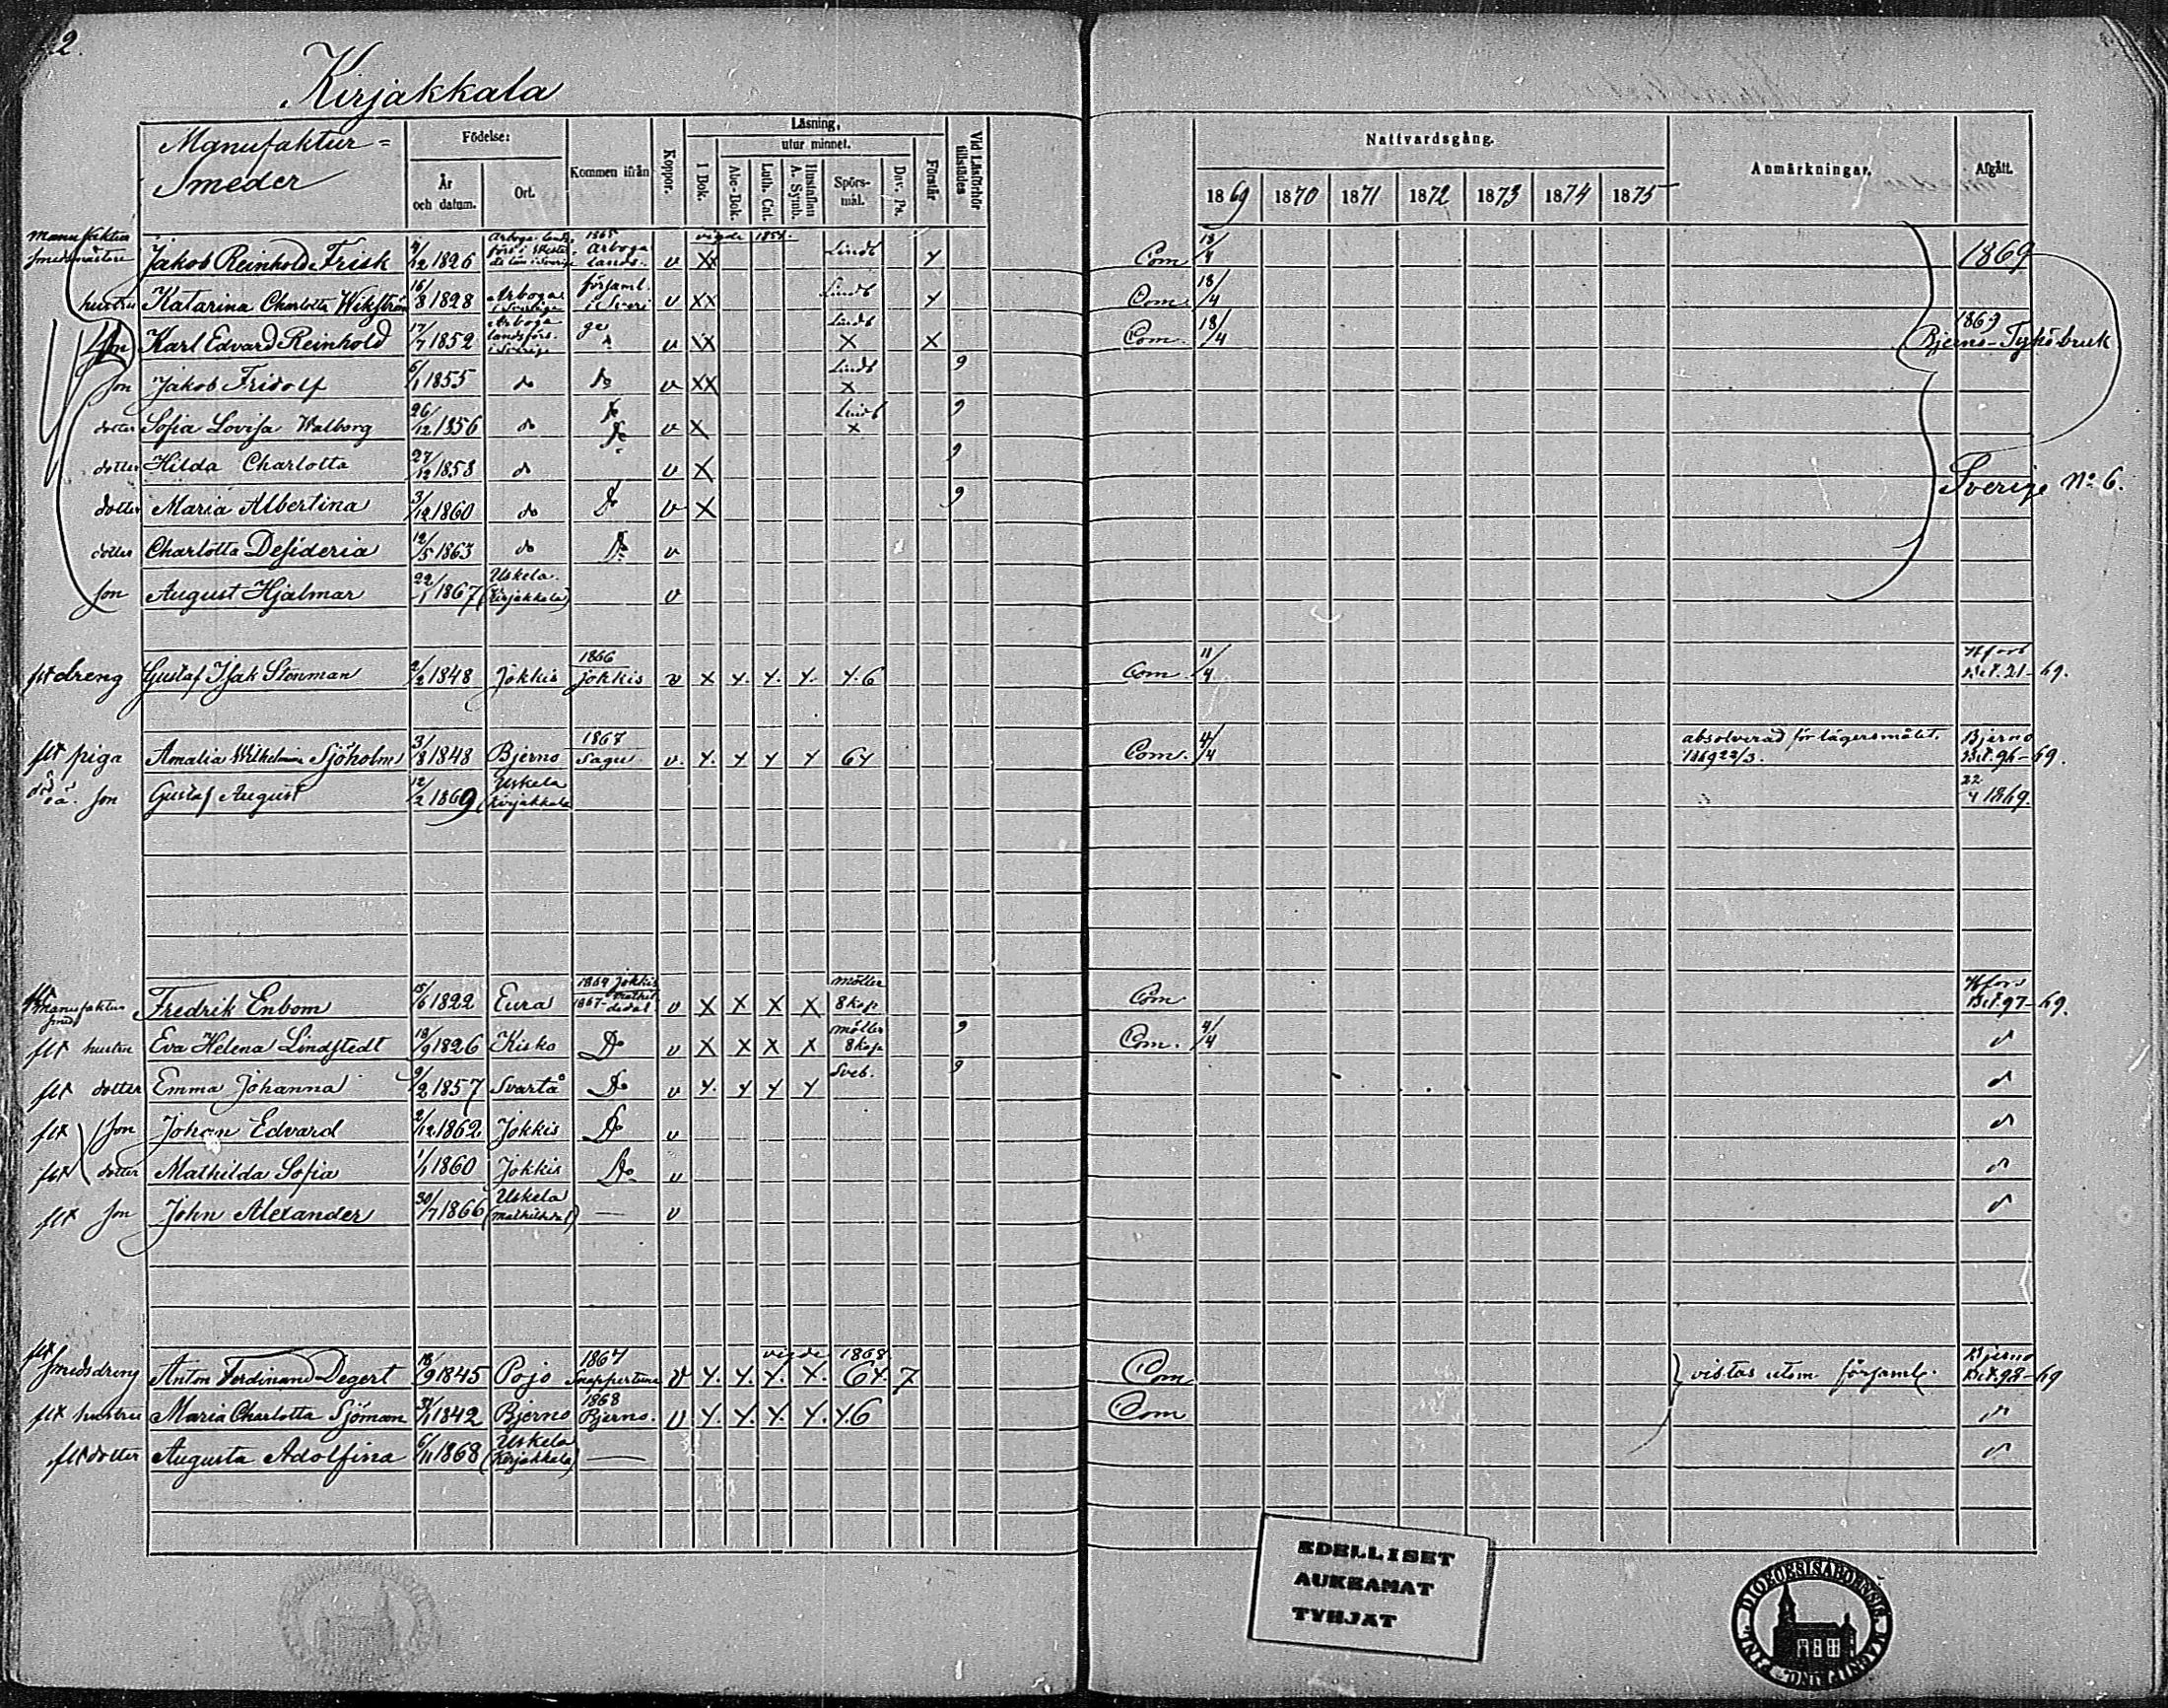 2.
Kirjakkala
Manufaktur=
Smeder
Födelse:
År och datum.
Ort.
Kommen ifrån
Koppor.
Läsning,
I Bok.
utur minnet.
Abc-Bok.
Luth. Cat.
Hustaflan A. Symb.
Spörs-mål.
Dav. Ps.
Förstår
Vid Läsförhör tillstädes
Nattvardsgång.
1869 1870 1871 1872 1873 1874 1875
Anmärkningar.
Afgått.
vigde 1851.
Jakob Reinhold Frisk 4/12 1826 1865 Arboga lands. v XX Lindb Y Com 18/4 1869
hustru Katarina Charlotta Wikström 16/8 1828 Arboga i Sverige församl. i Sveri v XX Lindb Y Com. 18/4
son Karl Edvard Reinhold 17/7 1852 Arboga landsförs. i Sverige ge v XX Lindb X X Com. 18/4 1869 Bjerno-Tykö bruk
son Jakob Fridolf 6/1 1855 do do v XX Lindb X 9
dotter Sofia Lovisa Walborg 26/12 1856 do do v X Lindb X 9
dotter Hilda Charlotta 27/12 1858 do do v X 9
Sverige No 6.
dotter Maria Albertina 3/12 1860 do Do v X 9
dotter Charlotta Desideria 12/5 1863 do Do v
son August Hjalmar 22/1 1867 Uskela. (Kirjakkala) v
flt dreng Gustaf Isak Stenman 2/2 1848 Jokkis 1866 Jokkis v X Y. Y. Y. Y. 6 Com. 11/4 Hfors Bet. 21-69.
flt piga Amalia Wilhelmina Sjöholm 3/8 1848 Bjerno 1867 Sagu v. Y. Y Y Y 6Y Com. 4/4 absolverad för lägersmålet. 1869 22/3. Bjerno Bet. 96-69.
son Gustaf August 12/2 1869 Uskela (Kirjakkala 22/4 1869.
flt Manufaktur smed Fredrik Enbom 15/6 1822 Eura 1864 Jokkis 1867- Mathildedal. v X X X X Möller 8 kap Com Hfors Bet. 97-69.
flt hustru Eva Helena Lindstedt 18/9 1826 Kisko Do v X X X X Möller 8 kap 9 Com. 4/4
flt dotter Emma Johanna 9/2 1857 Svartå Do v Y. Y Y Y Sveb. 9
flt son Johan Edvard 2/12 1862 Jokkis Do v
flt dotter Mathilda Sofia 1/1 1860 Jokkis Do v
flt son John Alexander 30/7 1866 Uskela (Mathildedal) — v
vigde 1868
flt Smedsdreng Anton Ferdinand Degert 18/9 1845 Pojo 1867 Snappertuna v Y. Y. Y. Y. 6Y. 7 Com vistas utom församl. Bjerno Bet. 98-69
flt hustru Maria Charlotta Sjöman 31/1 1842 Bjerno 1868 Bjerno. v Y. Y. Y. Y. Y.6 Com
flt dotter Augusta Adolfina 6/11 1868 Uskela (Kirjakkala) —
EDELLISET
AUKEAMAT
TYHJAT